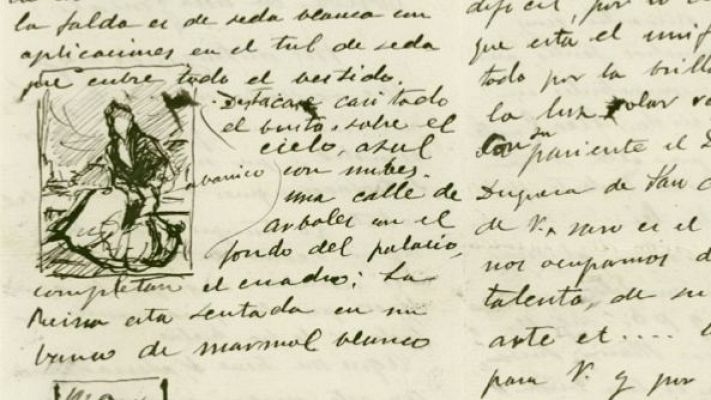 la falda es de seda blanca con
aplicaciones en el tul de seda
que cubre todo el vestido.
Destácase casi todo
el busto sobre el
cielo, azul
abanico con nubes.
una calle de
arboles con el
fondo del palacio,
completan el cuadro; La
Reina esta sentada en un
banco de marmol blanco
difícil, por
que esta el
todo por la brilla
la luz solar
pariente el
Duquesa de San
de V. raro es el
nos ocupamos d
talento, de su
arte et....
para V. y por